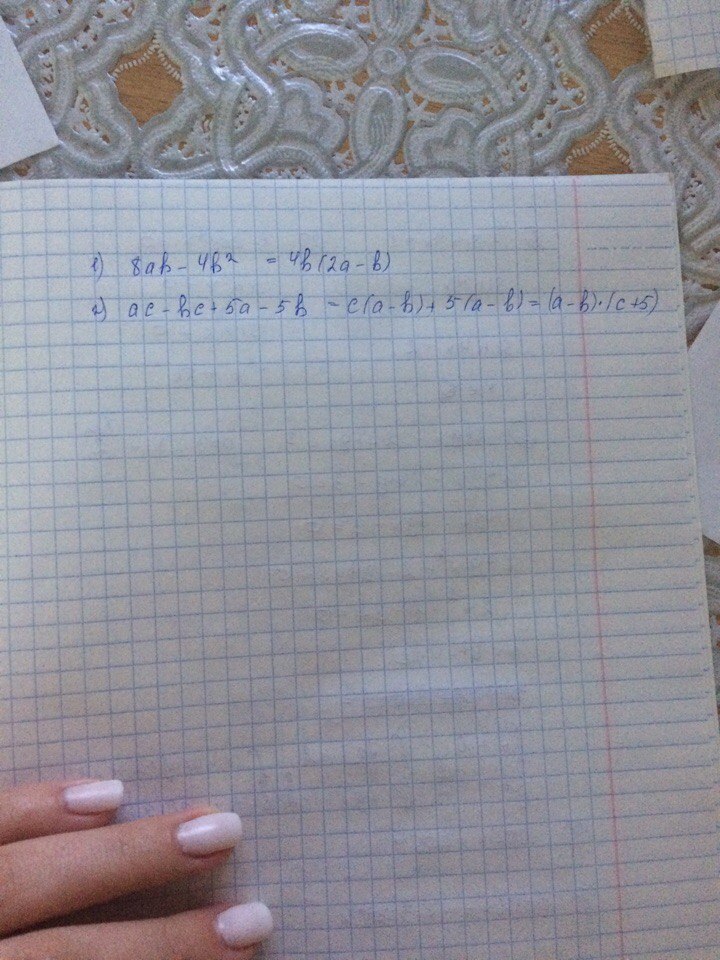 1) 8ab - 4b² = 4b(2a - b)
2) ac - bc + 5a - 5b = c(a - b) + 5(a - b) = (a - b)·(c + 5)